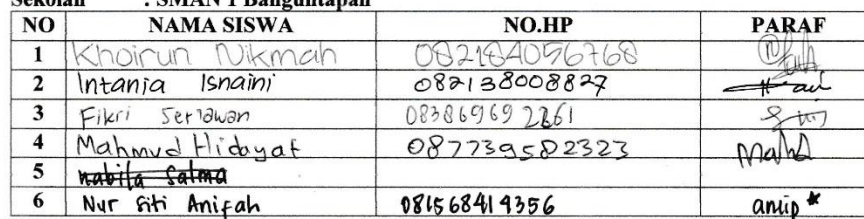 Sekolah : SMAN 1 Banguntapan
NO NAMA SISWA NO.HP PARAF
1 Khoirun Nikmah 082184056768
2 Intania Isnaini 082138008827
3 Fikri Seriawan 083869692261
4 Mahmud Hidayat 087739582323 Mahd
5 nabila salma
6 Nur Siti Anifah 081568414356